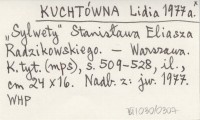 KUCHTÓWNA Lidia 1977 a.*
„Sylwety" Stanisława Eliasza
Radzikowskiego. — Warszawa.
K. tyt. (mps), s. 509-528, il.,
cm 24 x 16. Nadb. z: jw. 1977.
WHP